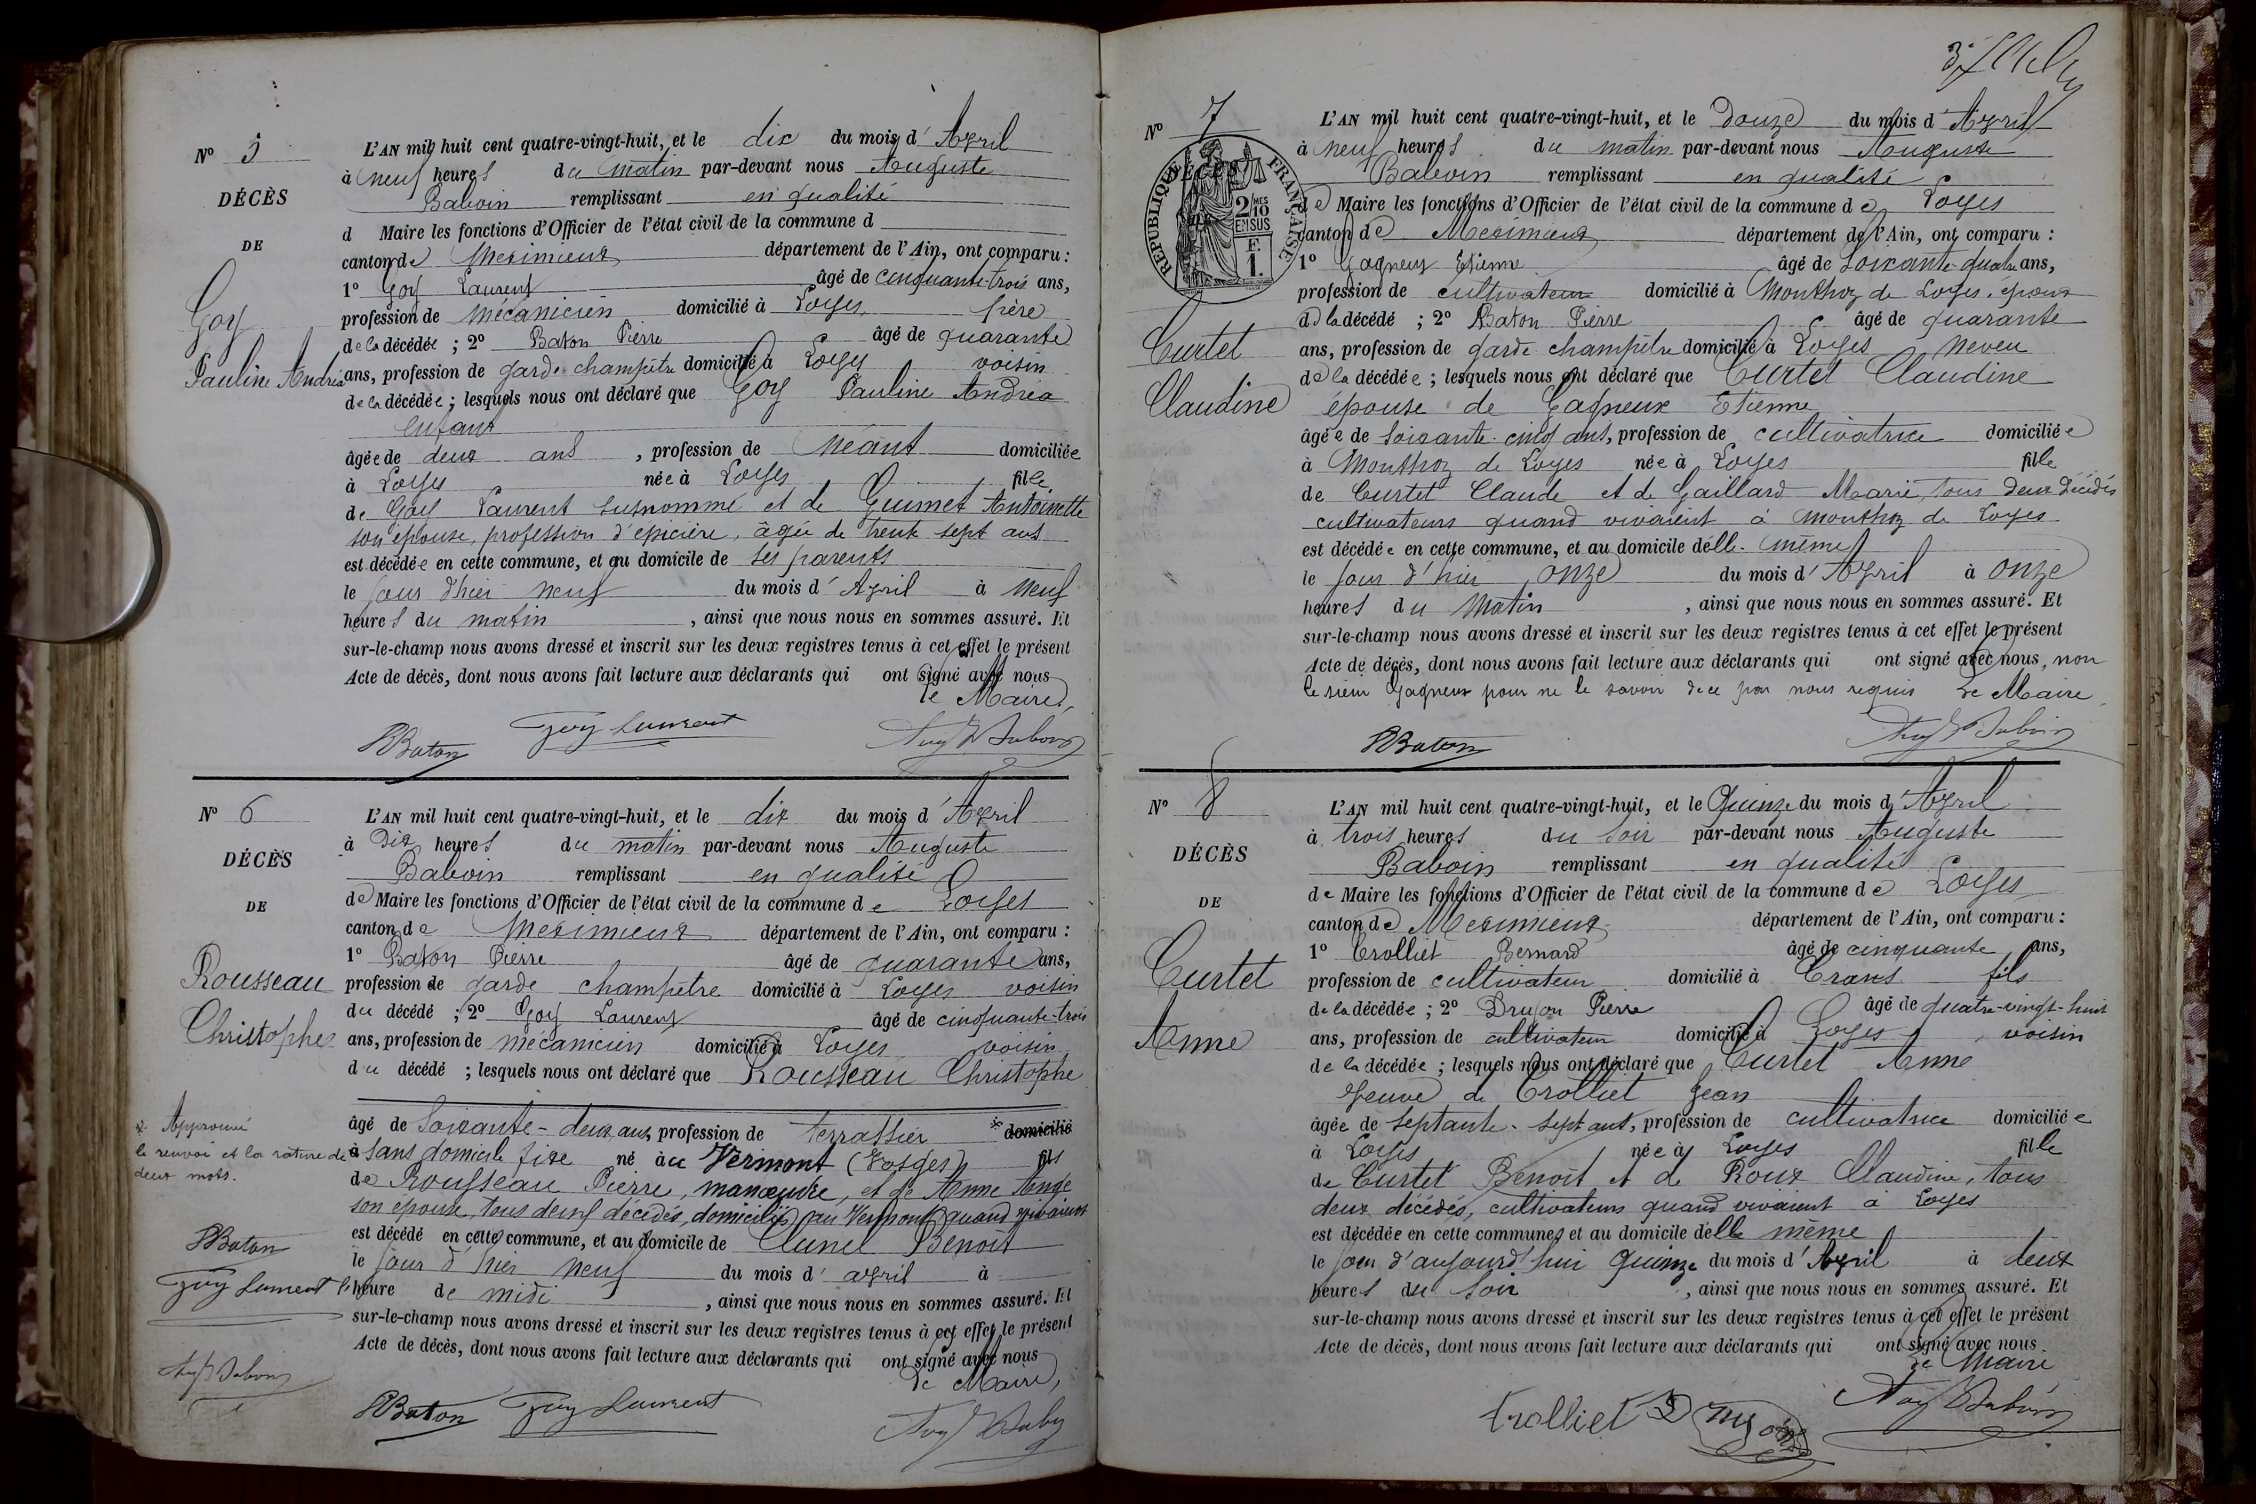 Nº 5
DÉCÈS
DE
Goy
Pauline Andréa
L'AN mil huit cent quatre-vingt-huit, et le dix du mois d'Avril
à neuf heures du matin par-devant nous Auguste
Baboin remplissant en qualité
d Maire les fonctions d'Officier de l'état civil de la commune d
canton de Meximieux département de l'Ain, ont comparu :
1º Goy Laurent âgé de cinquante-trois ans,
profession de mécanicien domicilié à Loyes, père
de la décédée ; 2º Baton Pierre âgé de quarante
ans, profession de garde champêtre domicilié à Loyes voisin
de la décédée ; lesquels nous ont déclaré que Goy Pauline Andréa
enfant
âgée de deux ans , profession de Néant domiciliée
à Loyes née à Loyes fille
de Goy Laurent susnommé et de Guimet Antoinette
son épouse, profession d'épicière, âgée de trente sept ans
est décédée en cette commune, et au domicile de ses parents
le jour d'hier neuf du mois d'Avril à neuf
heures du matin , ainsi que nous nous en sommes assuré. Et
sur-le-champ nous avons dressé et inscrit sur les deux registres tenus à cet effet le présent
Acte de décès, dont nous avons fait lecture aux déclarants qui ont signé avec nous
le Maire,
PBaton Goy Laurent Aug Baboin
Nº 6
DÉCÈS
DE
Rousseau
Christophe
L'AN mil huit cent quatre-vingt-huit, et le dix du mois d'Avril
à Dix heures du matin par-devant nous Auguste
Baboin remplissant en qualité
de Maire les fonctions d'Officier de l'état civil de la commune de Loyes
canton de Meximieux département de l'Ain, ont comparu :
1º Baton Pierre âgé de quarante ans,
profession de garde champêtre domicilié à Loyes voisin
du décédé ; 2º Goy Laurent âgé de cinquante-trois
ans, profession de mécanicien domicilié à Loyes, voisin
du décédé ; lesquels nous ont déclaré que Rousseau Christophe
âgé de Soixante-deux ans, profession de terrassier * domicilié
à sans domicile fixe né au Vermont (Vosges) fils
de Rousseau Pierre, manœuvre, et de Anne Ange
son épouse, tous deux décédés, domiciliés au Vermont quand vivaient
est décédé en cette commune, et au domicile de Clunel Benoit
le jour d'hier neuf du mois d'avril à
heure de midi , ainsi que nous nous en sommes assuré. Et
sur-le-champ nous avons dressé et inscrit sur les deux registres tenus à cet effet le présent
Acte de décès, dont nous avons fait lecture aux déclarants qui ont signé avec nous
Le Maire,
* Approuvé
le renvoi et la rature de
deux mots.
PBaton
Goy Laurent
Aug Baboin
PBaton Goy Laurent Aug Baboin
Nº 7
RÉPUBLIQUE FRANÇAISE
DÉCÈS
2/10 MES
EN SUS
F.
1.
Curtet
Claudine
L'AN mil huit cent quatre-vingt-huit, et le Douze du mois d'Avril
à neuf heures du matin par-devant nous Auguste
Baboin remplissant en qualité
de Maire les fonctions d'Officier de l'état civil de la commune de Loyes
canton de Meximieux département de l'Ain, ont comparu :
1º Gagneux Etienne âgé de soixante-quatre ans,
profession de cultivateur domicilié à Monthoz de Loyes, époux
de la décédé ; 2º Baton Pierre âgé de quarante
ans, profession de garde champêtre domicilié à Loyes neveu
de la décédée ; lesquels nous ont déclaré que Curtet Claudine
épouse de Gagneux Etienne
âgée de soixante-cinq ans, profession de cultivatrice domiciliée
à Monthoz de Loyes née à Loyes fille
de Curtet Claude et de Gaillard Marie, tous deux décédés
cultivateurs quand vivaient à Monthoz de Loyes
est décédée en cette commune, et au domicile d'elle-même
le jour d'hier onze du mois d'Avril à onze
heures du Matin , ainsi que nous nous en sommes assuré. Et
sur-le-champ nous avons dressé et inscrit sur les deux registres tenus à cet effet le présent
Acte de décès, dont nous avons fait lecture aux déclarants qui ont signé avec nous, non
le sieur Gagneux pour ne le savoir de ce par nous requis Le Maire
PBaton Aug Baboin
Nº 8
DÉCÈS
DE
Curtet
Anne
L'AN mil huit cent quatre-vingt-huit, et le Quinze du mois d'Avril
à trois heures du soir par-devant nous Auguste
Baboin remplissant en qualité
de Maire les fonctions d'Officier de l'état civil de la commune de Loyes
canton de Meximieux département de l'Ain, ont comparu :
1º Trolliet Bernard âgé de cinquante ans,
profession de cultivateur domicilié à Crans fils
de la décédée ; 2º Drujon Pierre âgé de quatre-vingt-huit
ans, profession de cultivateur domicilié à Loyes, voisin
de la décédée ; lesquels nous ont déclaré que Curtet Anne
Veuve de Trolliet Jean
âgée de septante-sept ans, profession de cultivatrice domiciliée
à Loyes née à Loyes fille
de Curtet Benoit et de Roux Claudine, tous
deux décédés, cultivateurs quand vivaient à Loyes
est décédée en cette commune et au domicile d'elle même
le jour d'aujourd'hui Quinze du mois d'Avril à deux
heures du soir , ainsi que nous nous en sommes assuré. Et
sur-le-champ nous avons dressé et inscrit sur les deux registres tenus à cet effet le présent
Acte de décès, dont nous avons fait lecture aux déclarants qui ont signé avec nous
Le Maire
Trolliet Drujon Aug Baboin